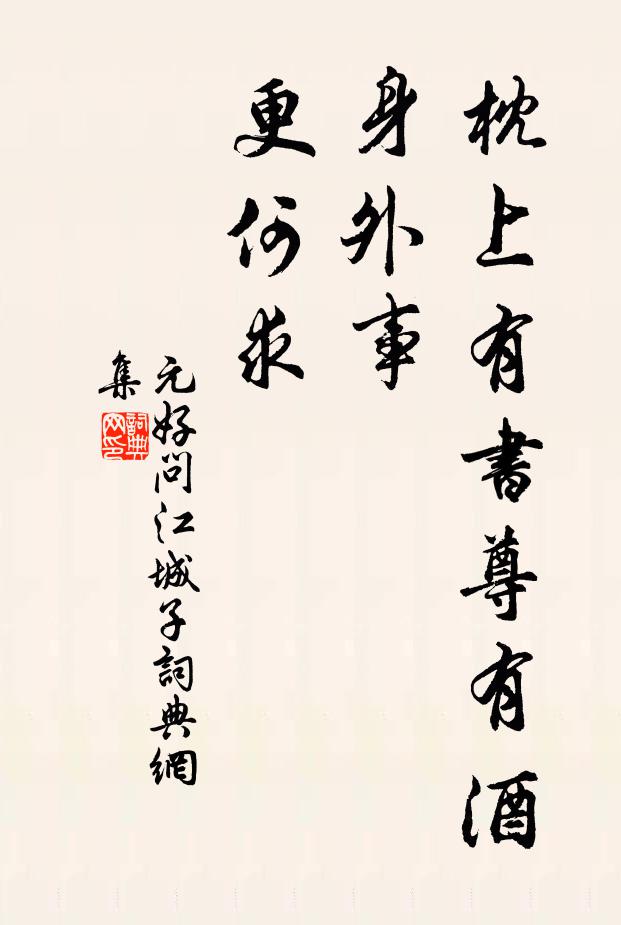 枕上有書尊有酒
身外事
更何求
元好问江城子詞典網
集
詞典
网印